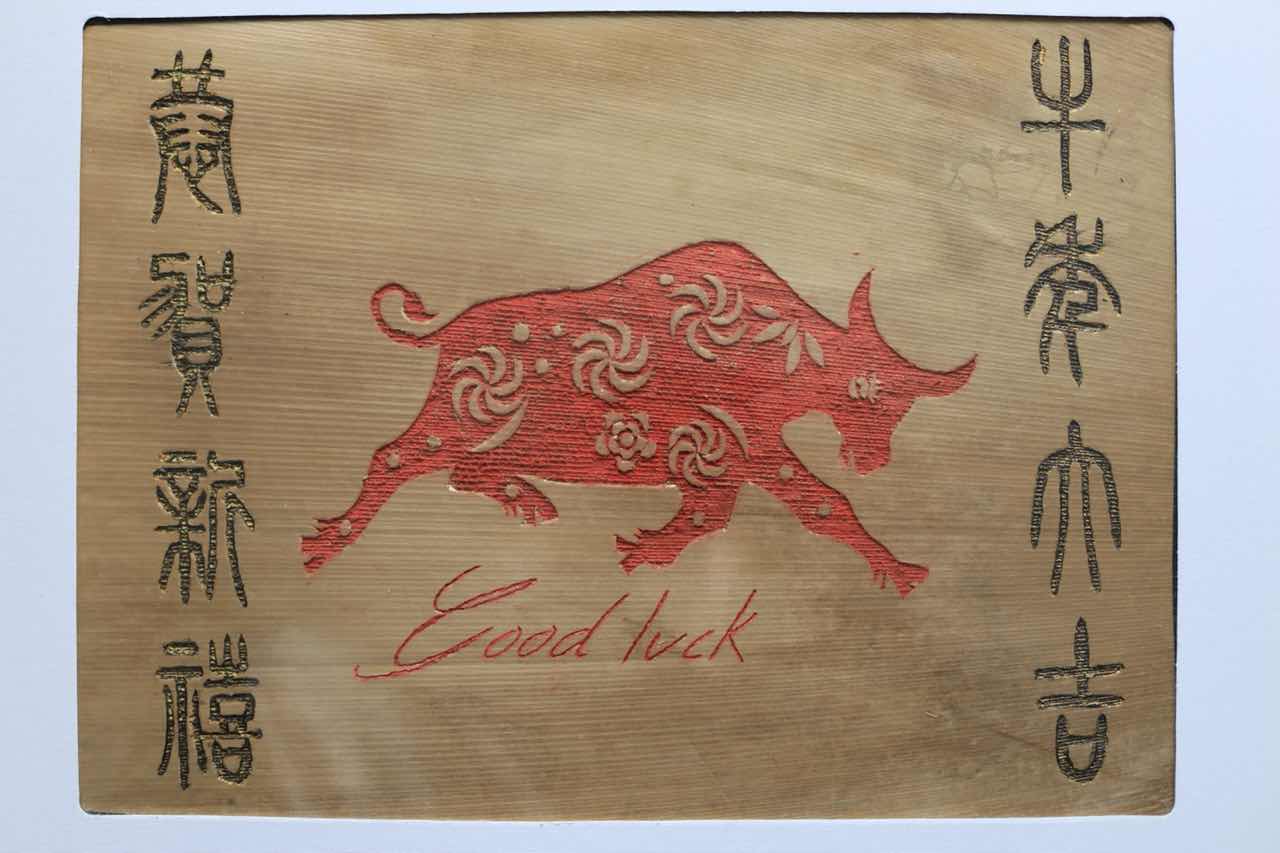 牛年大吉
Good luck
恭賀新禧